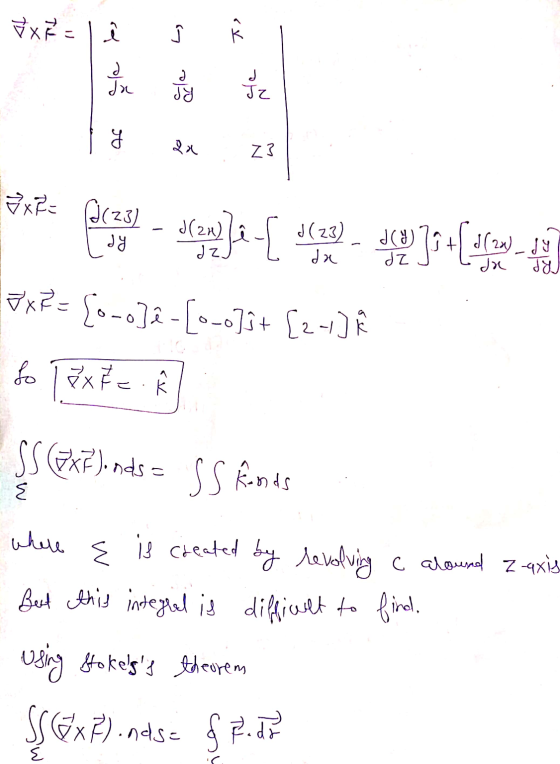 ∇⃗×F⃗ = | î ĵ k̂
d/dx d/dy d/dz
y 2x z3 |
∇⃗×F⃗ = [d(z3)/dy - d(2x)/dz] î - [d(z3)/dx - d(y)/dz] ĵ + [d(2x)/dx - dy/dy]
∇⃗×F⃗ = [0-0] î - [0-0] ĵ + [2-1] k̂
So ∇⃗×F⃗ = k̂
∬_Σ (∇⃗×F⃗).nds = ∬ k̂.nds
where Σ is created by revolving C around z-axis
But this integral is difficult to find.
Using Stoke's's theorem
∬_Σ (∇⃗×F⃗).nds = ∮_C F⃗.dr⃗